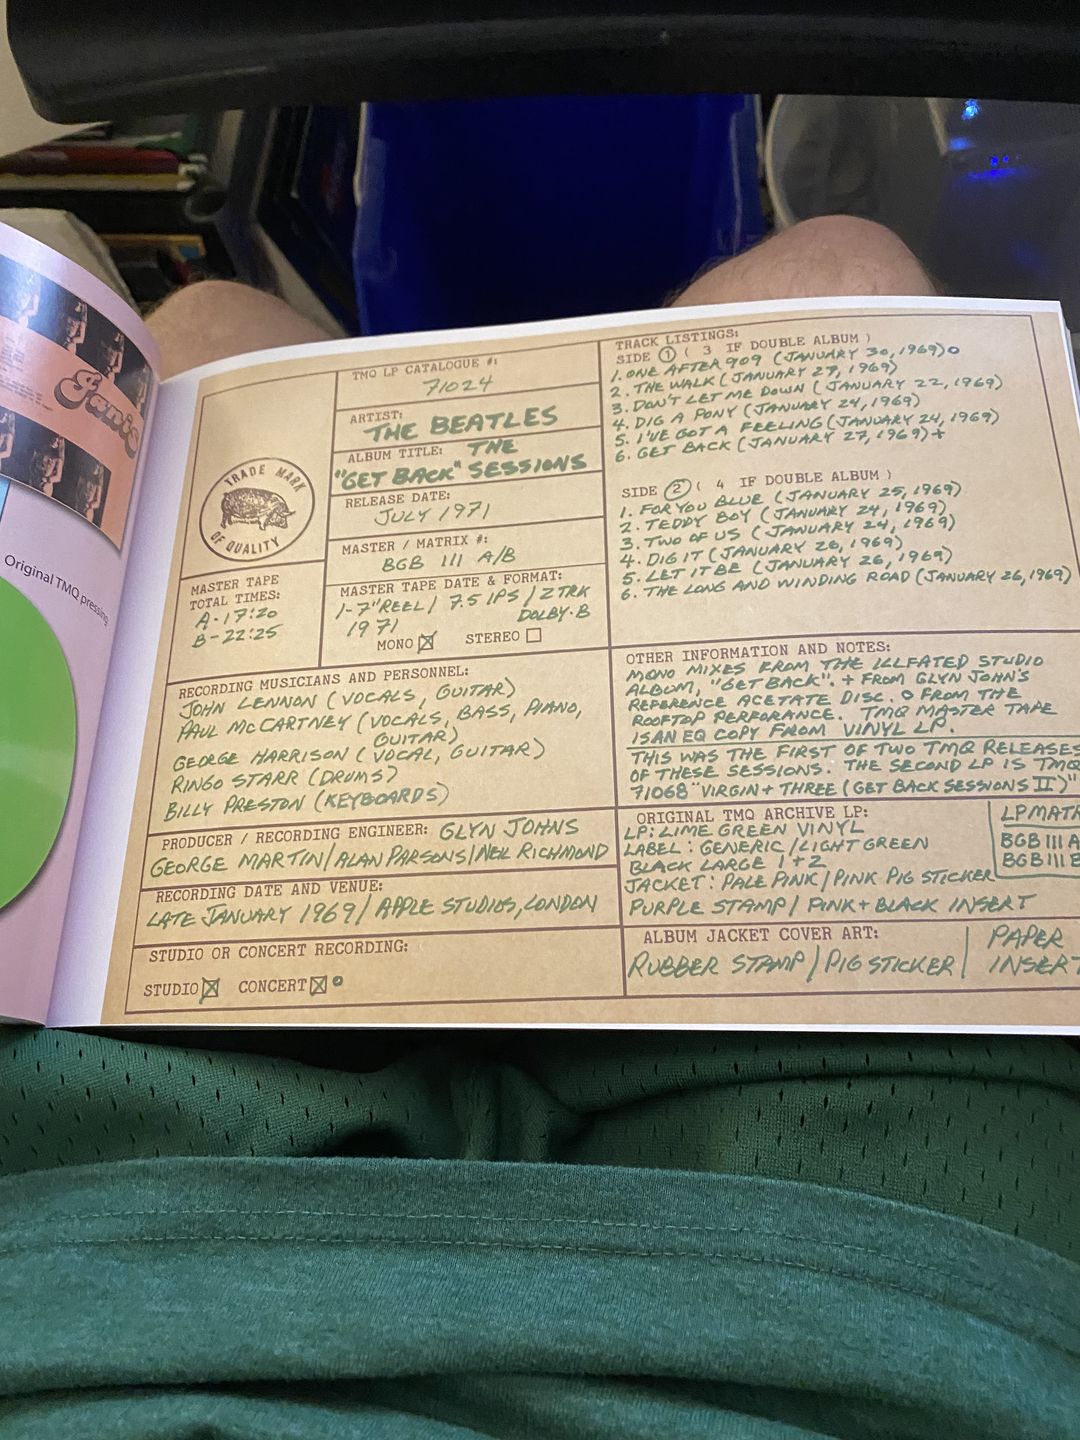 Janis
Original TMQ pressing
TRADE MARK
OF QUALITY
TMQ LP CATALOGUE #:
71024
ARTIST:
THE BEATLES
ALBUM TITLE: THE
"GET BACK" SESSIONS
RELEASE DATE:
JULY 1971
MASTER / MATRIX #:
BGB 111 A/B
MASTER TAPE
TOTAL TIMES:
A-17:20
B-22:25
MASTER TAPE DATE & FORMAT:
1-7" REEL / 7.5 IPS / 2TRK
1971 DOLBY-B
MONO STEREO
RECORDING MUSICIANS AND PERSONNEL:
JOHN LENNON (VOCALS, GUITAR)
PAUL McCARTNEY (VOCALS, BASS, PIANO,
GUITAR)
GEORGE HARRISON (VOCAL, GUITAR)
RINGO STARR (DRUMS)
BILLY PRESTON (KEYBOARDS)
PRODUCER / RECORDING ENGINEER: GLYN JOHNS
GEORGE MARTIN/ALAN PARSONS/NEIL RICHMOND
RECORDING DATE AND VENUE:
LATE JANUARY 1969/ APPLE STUDIOS, LONDON
STUDIO OR CONCERT RECORDING:
STUDIO CONCERT
TRACK LISTINGS:
SIDE 1 ( 3 IF DOUBLE ALBUM )
1. ONE AFTER 909 (JANUARY 30, 1969) o
2. THE WALK (JANUARY 27, 1969)
3. DON'T LET ME DOWN (JANUARY 22, 1969)
4. DIG A PONY (JANUARY 24, 1969)
5. I'VE GOT A FEELING (JANUARY 24, 1969)
6. GET BACK (JANUARY 27, 1969) +
SIDE 2 ( 4 IF DOUBLE ALBUM )
1. FOR YOU BLUE (JANUARY 25, 1969)
2. TEDDY BOY (JANUARY 24, 1969)
3. TWO OF US (JANUARY 24, 1969)
4. DIG IT (JANUARY 26, 1969)
5. LET IT BE (JANUARY 26, 1969)
6. THE LONG AND WINDING ROAD (JANUARY 26, 1969)
OTHER INFORMATION AND NOTES:
MONO MIXES FROM THE ILLFATED STUDIO
ALBUM, "GET BACK". + FROM GLYN JOHN'S
REFERENCE ACETATE DISC. o FROM THE
ROOFTOP PERFORANCE. TMQ MASTER TAPE
IS AN EQ COPY FROM VINYL LP.
THIS WAS THE FIRST OF TWO TMQ RELEASES
OF THESE SESSIONS. THE SECOND LP IS TMQ
71068 "VIRGIN + THREE (GET BACK SESSIONS II)"
ORIGINAL TMQ ARCHIVE LP:
LP: LIME GREEN VINYL
LABEL: GENERIC / LIGHT GREEN
BLACK LARGE 1+2
JACKET: PALE PINK / PINK PIG STICKER
PURPLE STAMP / PINK + BLACK INSERT
LP MATR
BGB 111 A
BGB 111 B
ALBUM JACKET COVER ART:
RUBBER STAMP / PIG STICKER
PAPER
INSERT